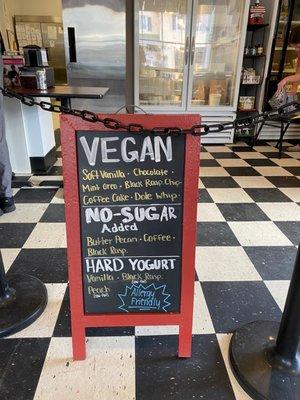 VEGAN
Soft Vanilla · Chocolate
Mint Oreo · Black Rasp. Chip
Coffee Cake · Dole Whip
NO-SUGAR
Added
Butter Pecan · Coffee
Black Rasp
HARD YOGURT
Vanilla · Black Rasp
Peach
Allergy
Friendly